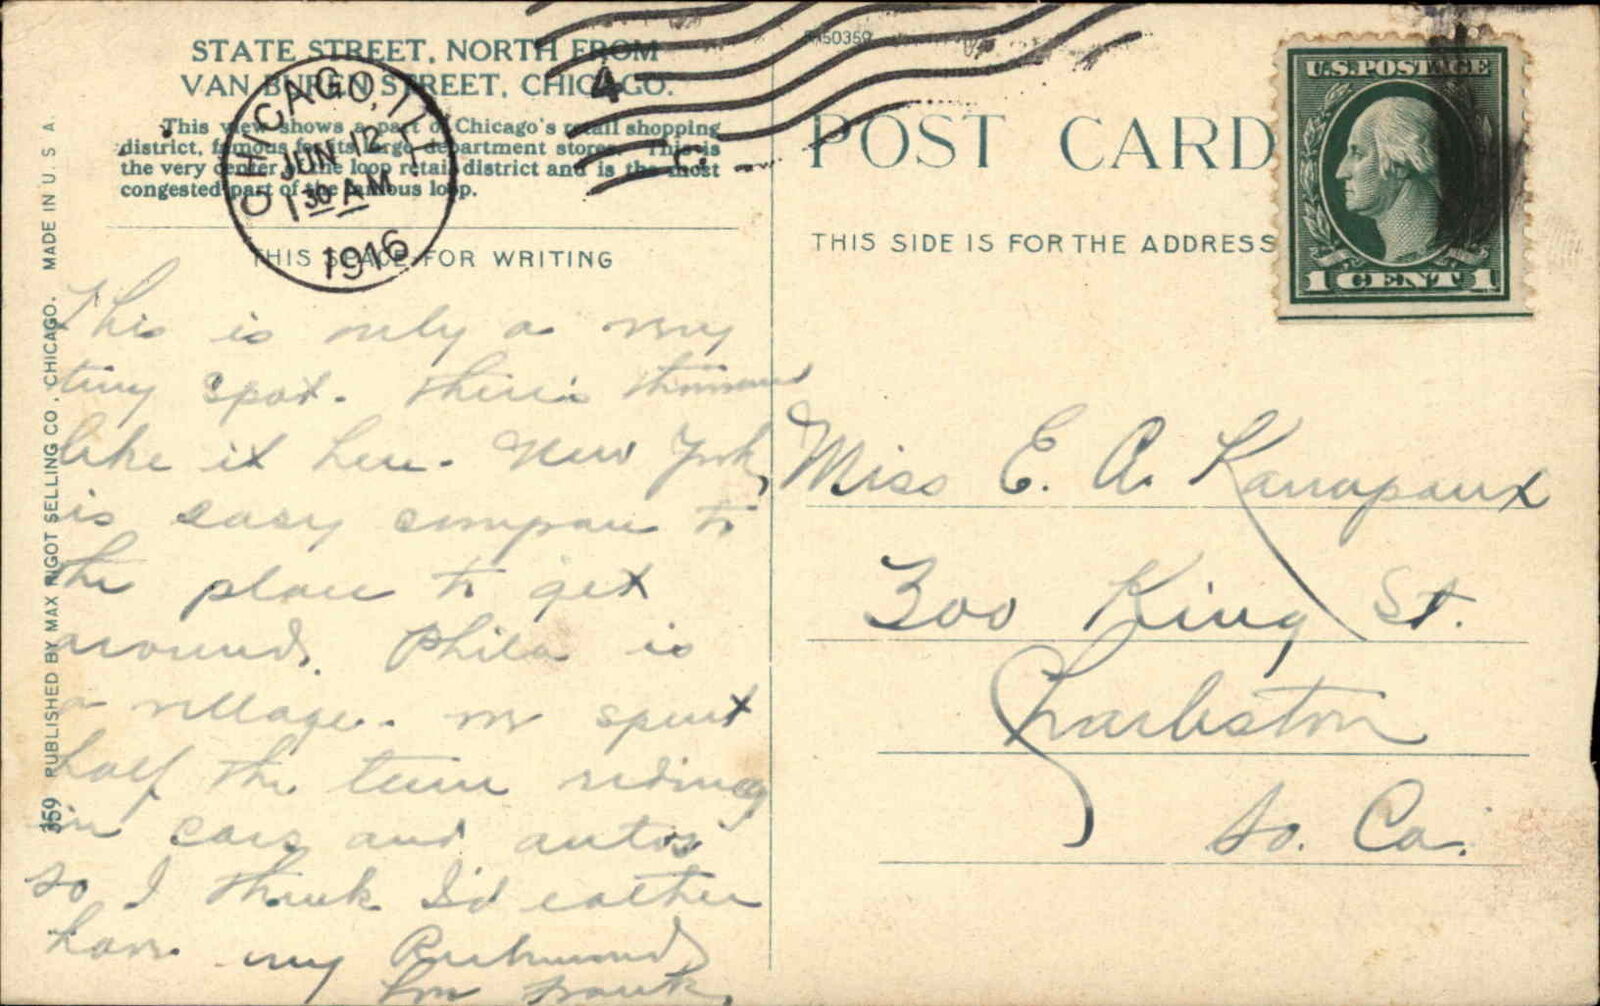 STATE STREET, NORTH FROM
VAN BUREN STREET, CHICAGO.
This view shows a part of Chicago's retail shopping
district, famous for its large department stores. This is
the very center of the loop retail district and is the most
congested part of the famous loop.
THIS SPACE FOR WRITING
This is only a very
tiny spot. There's thousand
like it here. New York
is easy compare to
the place to get
around. Phila is
a village. We spent
half the time riding
in cars and autos
so I think I'd rather
have my Richmond
Frank
359 PUBLISHED BY MAX RIGOT SELLING CO., CHICAGO. MADE IN U. S. A.
CHICAGO, ILL.
JUN 12
1 30 AM
1916
4
C
POST CARD
THIS SIDE IS FOR THE ADDRESS
U.S. POSTAGE
1 CENT 1
Miss E. A. Kanapaux
300 King St.
Charleston
So. Ca.